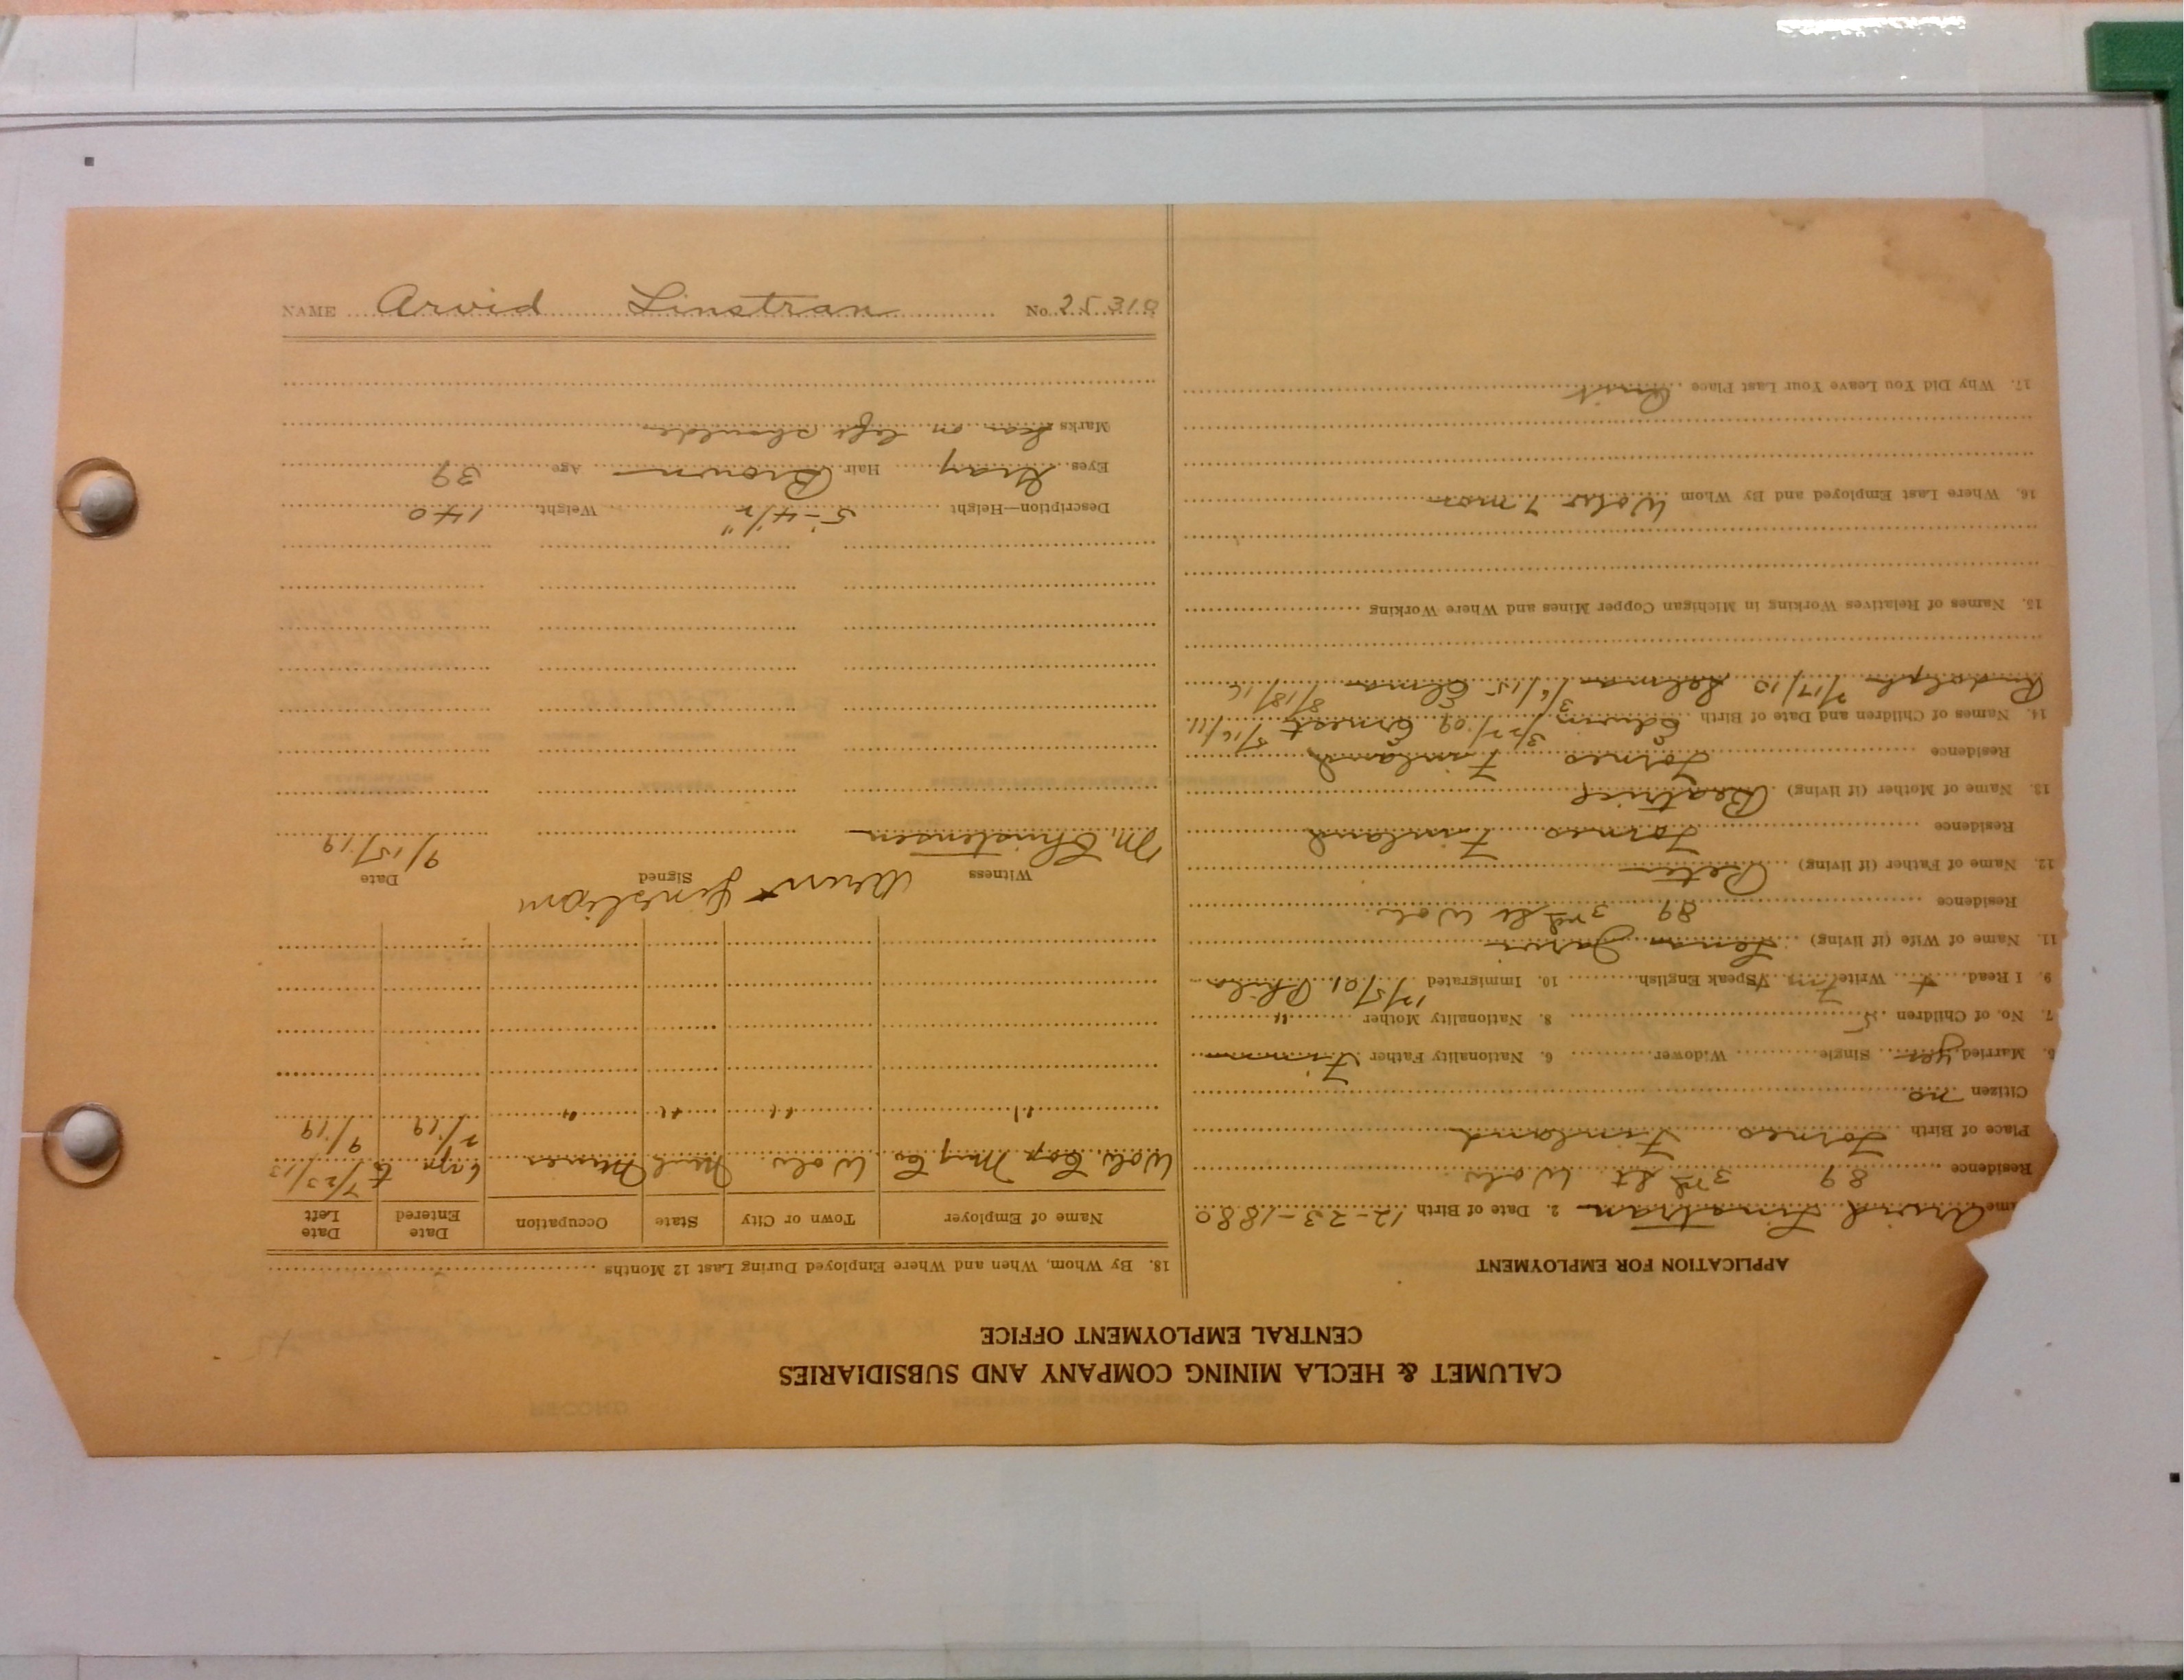 CALUMET & HECLA MINING COMPANY AND SUBSIDIARIES
CENTRAL EMPLOYMENT OFFICE
APPLICATION FOR EMPLOYMENT
ame Arvid Linstran 2. Date of Birth 12-23-1880
Residence 89 3rd St Wolv.
Place of Birth Torneo Finland
Citizen no
5. Married yes Single Widower 6. Nationality Father Finn
7. No. of Children 5 8. Nationality Mother "
9. I Read Write Fin Speak English 10. Immigrated 12/5/01 Phila
11. Name of Wife (if living) Lena Jarvi
Residence 89 3rd St Wolv.
12. Name of Father (if living) Peter
Residence Torneo Finland
13. Name of Mother (if living) Beatrice
Residence Torneo Finland
14. Names of Children and Date of Birth Edwin 3/22/09 Ernest 5/16/11
Rudolph 7/17/10 Selma 3/6/15 Elma 8/18/16
15. Names of Relatives Working in Michigan Copper Mines and Where Working
16. Where Last Employed and By Whom Wolv 7 mos
17. Why Did You Leave Your Last Place Quit
18. By Whom, When and Where Employed During Last 12 Months
Name of Employer Town or City State Occupation Date Entered Date Left
Wolv. Cop Mng Co Wolv. Mich Miner 6 yrs to 7/23/13
" " " " 2/19 9/19
Witness Signed Date
M. Christensen Linstrom 9/15/19
Description—Height 5'-4 1/2" Weight 140
Eyes Gray Hair Brown Age 39
Marks Scar on left shoulder
NAME Arvid Linstran No. 25310